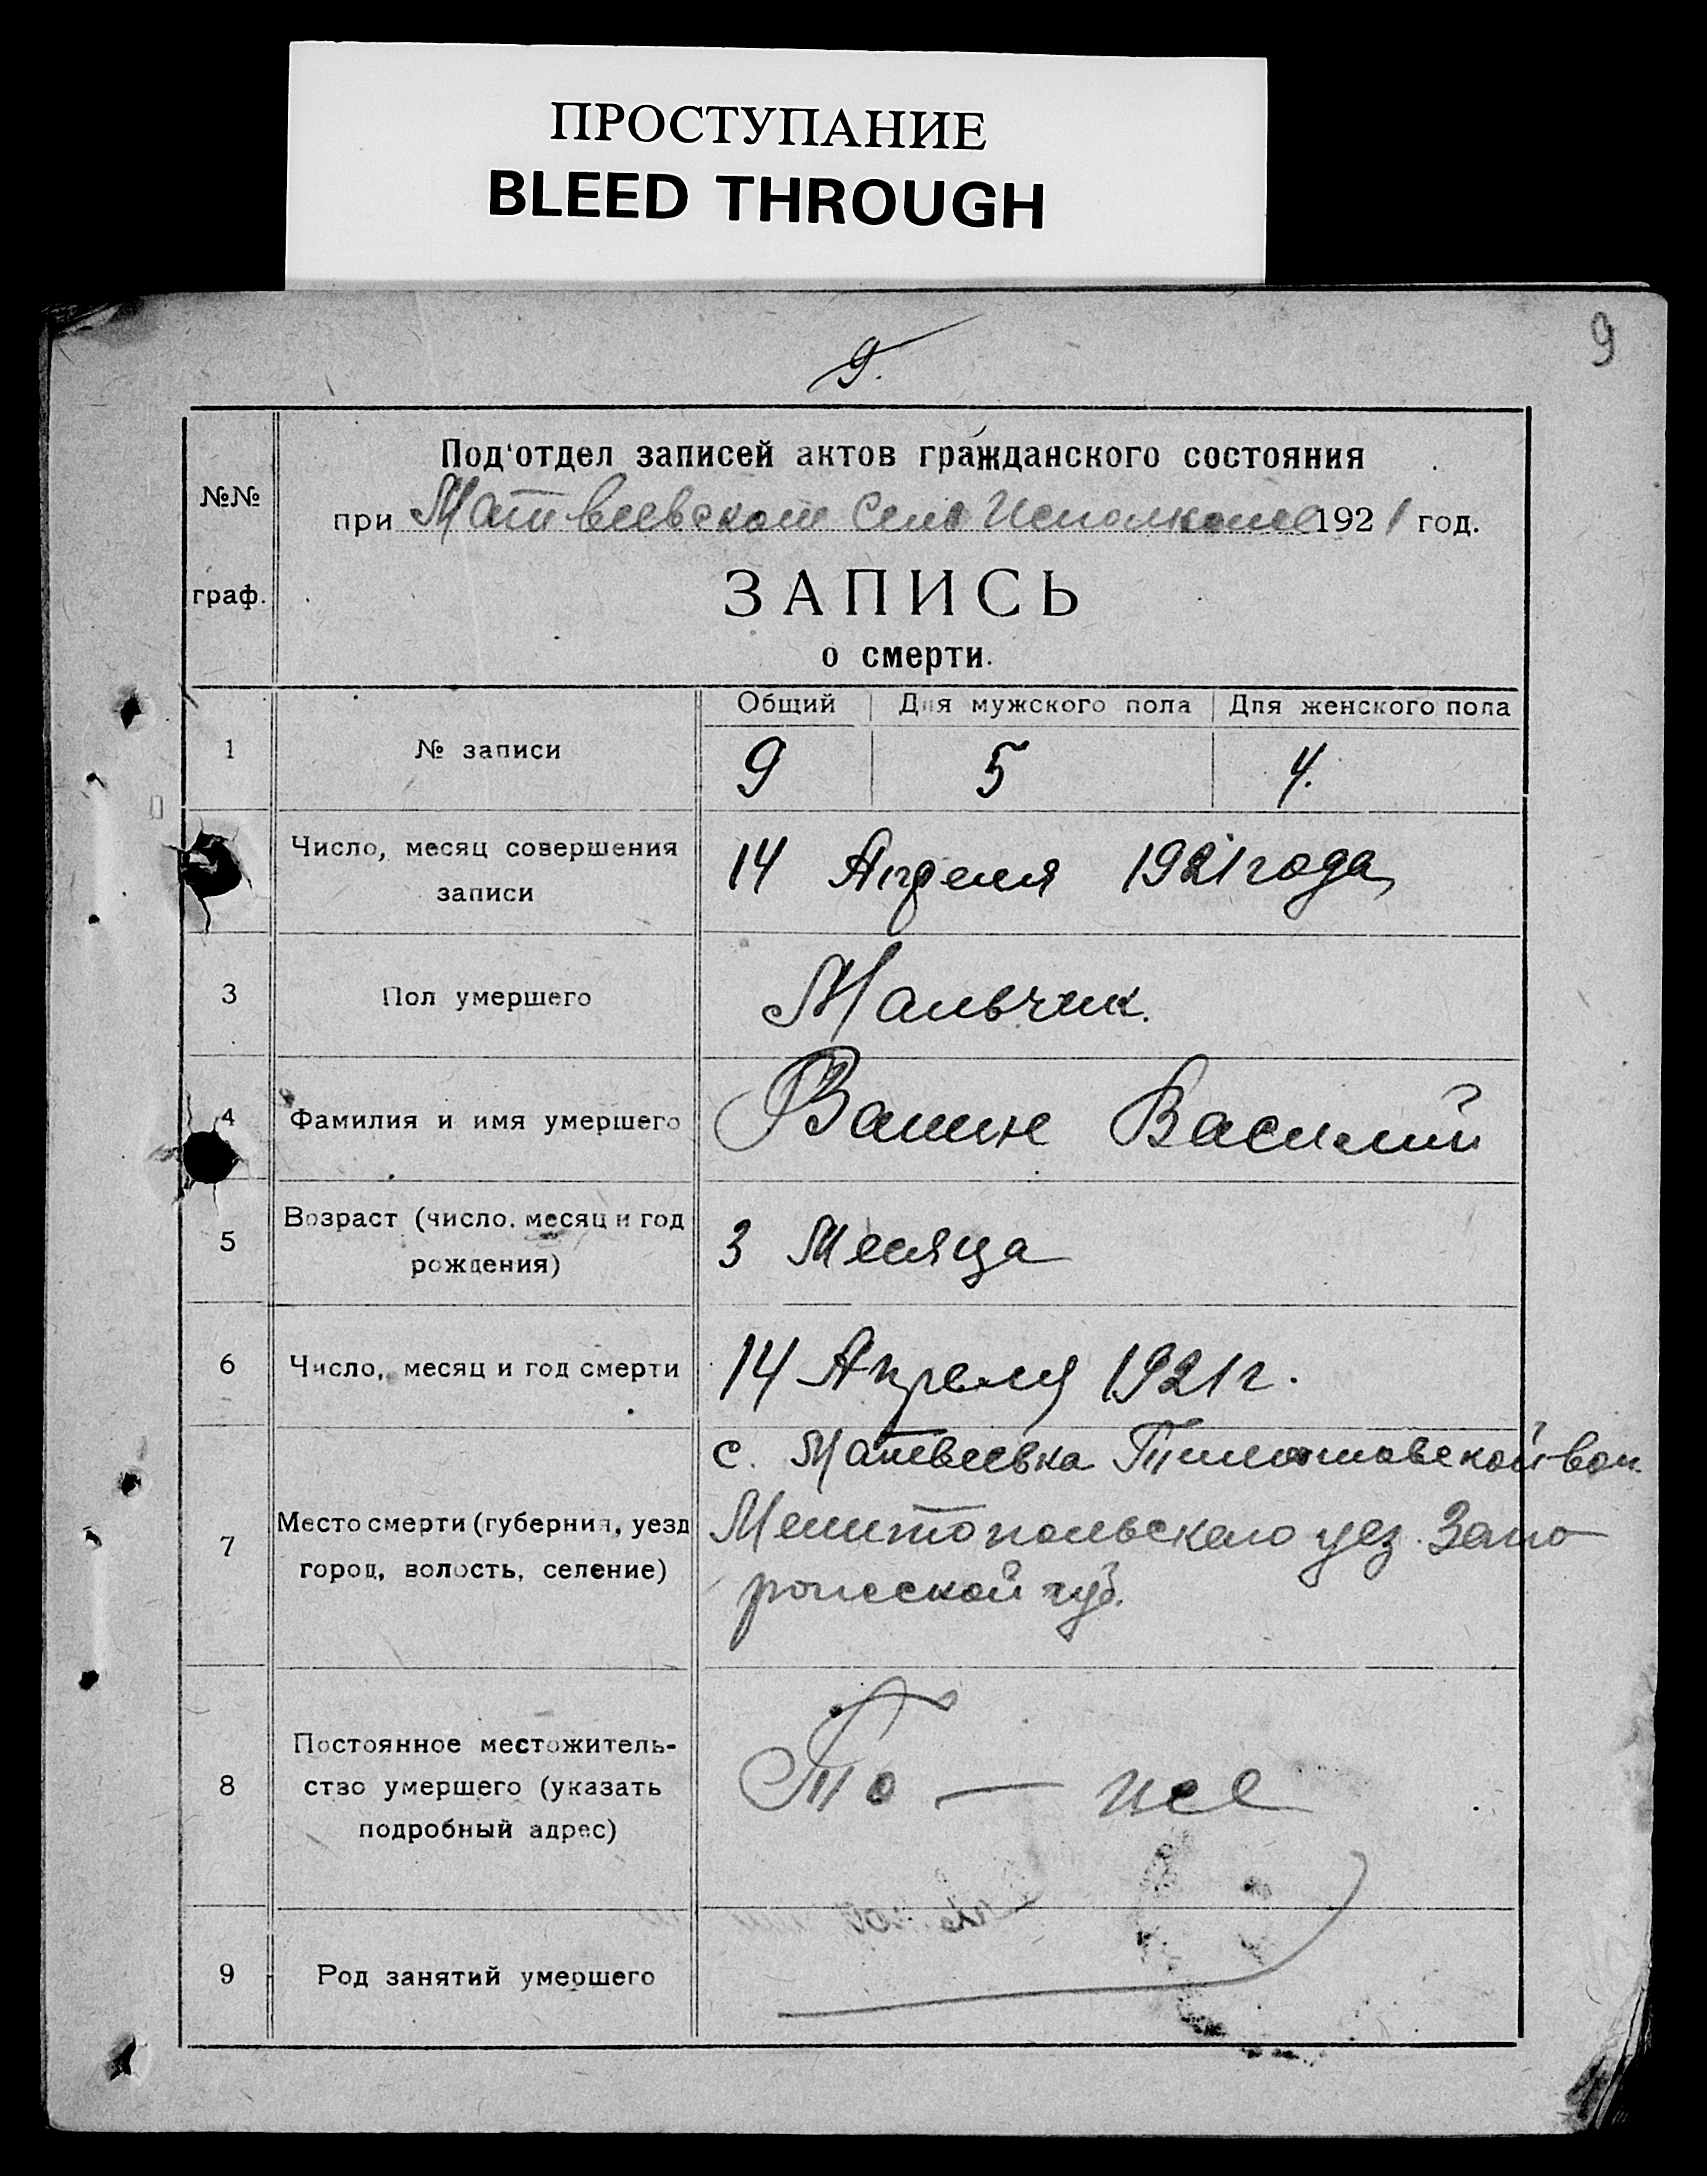 ПРОСТУПАНИЕ
BLEED THROUGH
9
9.
Под'отдел записей актов гражданского состояния
№№
при Матвеевском Сель Исполкоме 1921 год.
граф.
ЗАПИСЬ
о смерти.
Общий Для мужского пола Для женского пола
1 № записи 9 5 4.
Число, месяц совершения
записи
14 Апреля 1921 года
3 Пол умершего Мальчик.
4 Фамилия и имя умершего Василий
5 Возраст (число, месяц и год
рождения)
3 Месяца
6 Число, месяц и год смерти 14 Апреля 1921 г.
7 Место смерти (губерния, уезд
город, волость, селение)
с. Матвеевка вол.
Мелитопольского уез. Запо
рожской губ.
8 Постоянное местожитель-
ство умершего (указать
подробный адрес)
То — же
9 Род занятий умершего